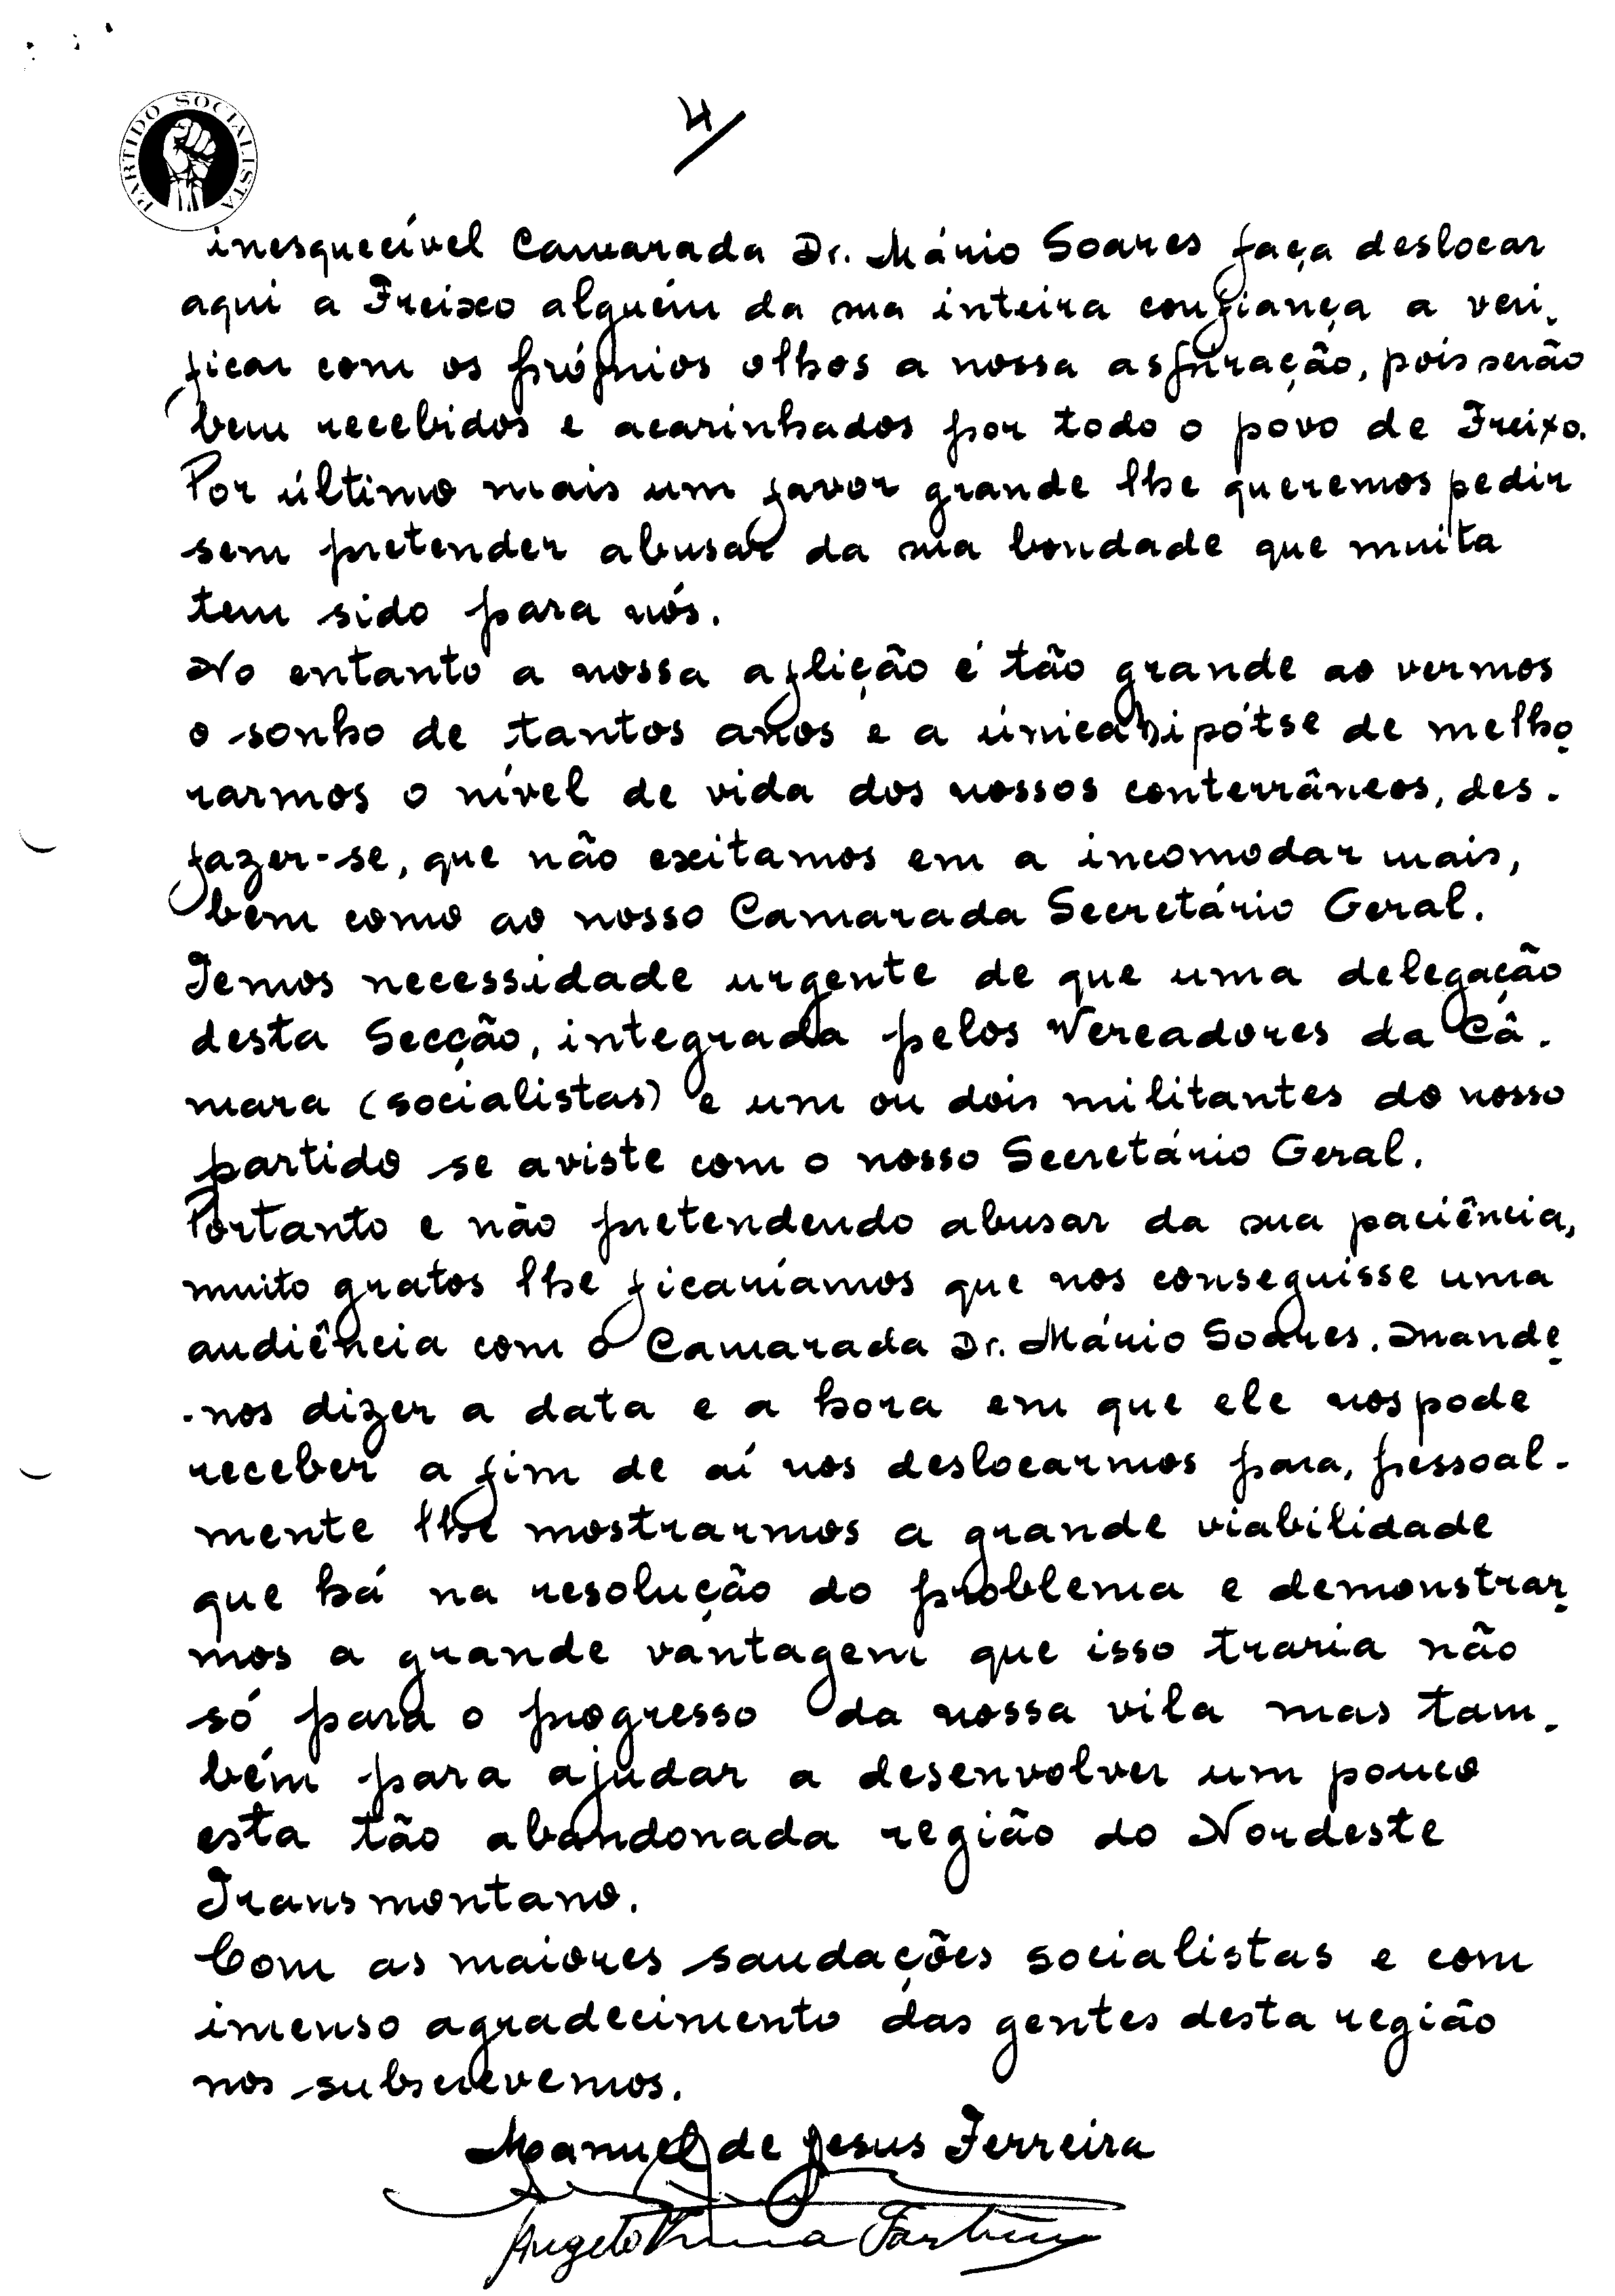 PARTIDO SOCIALISTA
4/
inesquecível Camarada Dr. Mário Soares faça deslocar
aqui a Freixo alguém da sua inteira confiança a veri-
ficar com os próprios olhos a nossa aspiração, pois serão
bem recebidos e acarinhados por todo o povo de Freixo.
Por último mais um favor grande lhe queremos pedir
sem pretender abusar da sua bondade que muita
tem sido para nós.
No entanto a nossa aflição é tão grande ao vermos
o sonho de tantos anos e a única hipótse de melho
rarmos o nível de vida dos nossos conterrâneos, des-
fazer-se, que não exitamos em a incomodar mais,
bem como ao nosso Camarada Secretário Geral.
Temos necessidade urgente de que uma delegação
desta Secção, integrada pelos Vereadores da Câ-
mara (socialistas) e um ou dois militantes do nosso
partido se aviste com o nosso Secretário Geral.
Portanto e não pretendendo abusar da sua paciência,
muito gratos lhe ficaríamos que nos conseguisse uma
audiência com o Camarada Dr. Mário Soares. Mande
-nos dizer a data e a hora em que ele nos pode
receber a fim de aí nos deslocarmos para, pessoal-
mente lhe mostrarmos a grande viabilidade
que há na resolução do problema e demonstrar
mos a grande vantagem que isso traria não
só para o progresso da nossa vila mas tam-
bém para ajudar a desenvolver um pouco
esta tão abandonada região do Nordeste
Transmontano.
Com as maiores saudações socialistas e com
imenso agradecimento das gentes desta região
nos subscrevemos.
Manuel de Jesus Ferreira
Angelo